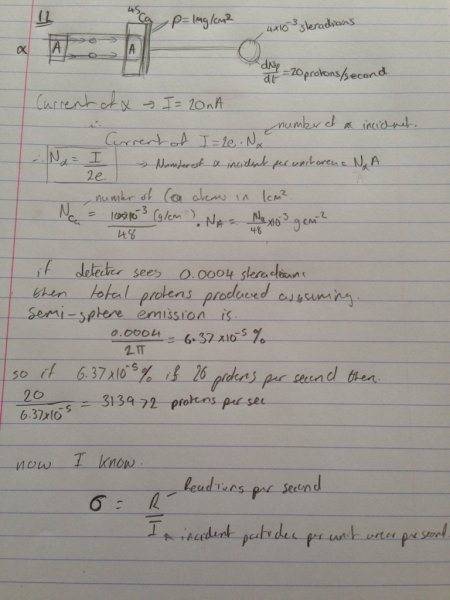 11
⁴⁸Ca
ρ = 1mg/cm²
4×10⁻³ steradians
α
A
A
dNp/dt = 20 protons/second
Current of α → I = 20nA
∴
Current of I = 2e · Nα
number of α incident.
∴ Nα = I/2e → Number of α incident per unit area = Nα A
number of Ca atoms in 1cm²
N_Ca = 10⁻³ (g/cm²)/48 · N_A = N_A/48 ×10⁻³ gcm⁻²
if detector sees 0.0004 steradians
then total protons produced assuming
semi-sphere emission is.
0.0004/2π = 6.37×10⁻⁵ %
so if 6.37×10⁻⁵ % is 20 protons per second then.
20/6.37×10⁻⁵ = 313972 protons per sec
now I know.
σ = R/I
Reactions per second
incident particles per unit area per second